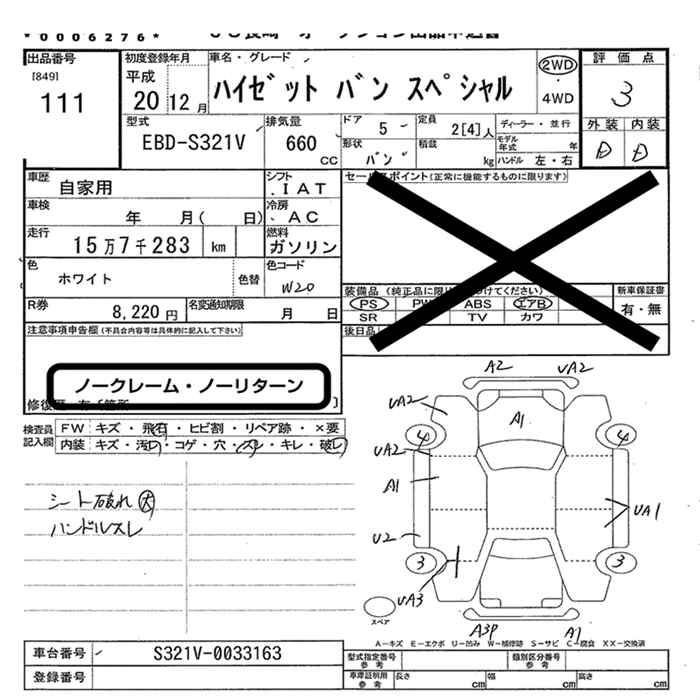 *0006276*
出品番号 初度登録年月 車名・グレード 評価点
[849] 平成 2WD
111 20 12月 ハイゼット バン スペシャル 4WD 3
型式 排気量 ドア 5 定員 2[4]人 ディーラー・並行 外装 内装
EBD-S321V 660 cc 形状 バン 積載 kg モデル年式 年 ハンドル 左・右 D D
車歴 自家用 シフト IAT セールスポイント(正常に機能するものに限ります)
車検 年 月( 日) 冷房 AC
走行 15万7千283 km 燃料 ガソリン
色 ホワイト 色替 色コード W20
装備品(純正品に限り つけてください) 新車保証書
R券 8,220円 名変通知期限 月 日 PS PW ABS エアB 有・無
SR TV カワ
注意事項申告欄(不具合内容等は具体的に記入して下さい) 後日品
ノークレーム・ノーリターン
検査員記入欄 FW キズ・飛石・ヒビ割・リペア跡・×要
内装 キズ・汚レ・コゲ・穴・スレ・キレ・破レ
シート破れ大
ハンドルスレ
A2 UA2
UA2 A1
4 4
UA2
A1 UA1
U2
3 3
UA3
スペア
A3P A1
A-キズ E-エクボ U-凹み W-補修跡 S-サビ C-腐食 XX-交換済
車台番号 S321V-0033163
型式指定番号 参考 類別区分番号 参考
登録番号 車庫証明用 参考 長さ cm 幅 cm 高さ cm